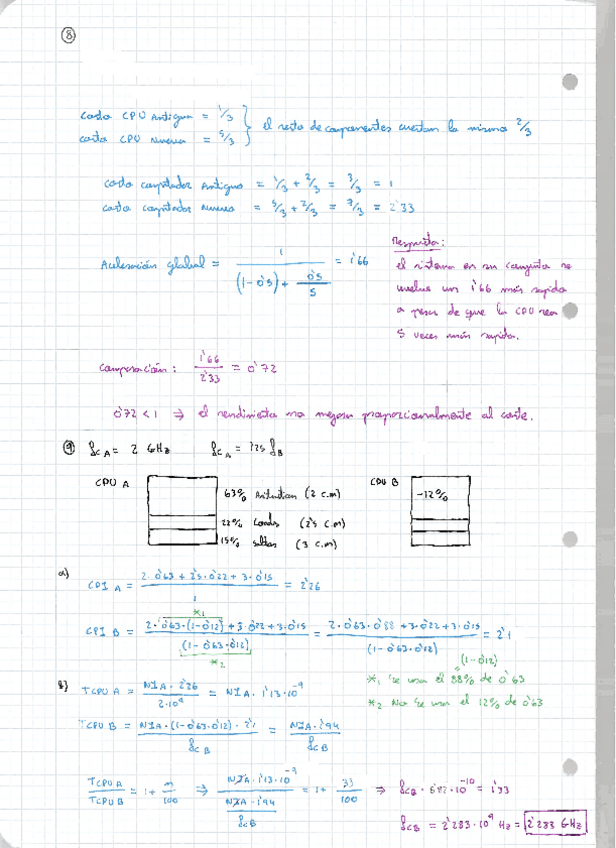 8
costo CPU Antigua = 1/3
costo CPU Nueva = 5/3
} el resto de componentes cuestan lo mismo 2/3
costo computador Antiguo = 1/3 + 2/3 = 3/3 = 1
costo computador Nuevo = 5/3 + 2/3 = 7/3 = 2'33
Respuesta:
Aceleración global = 1 / ((1-0'5) + 0'5/5) = 1'66
el sistema en su conjunto se
vuelve un 1'66 más rápido
a pesar de que la CPU sea
5 veces más rápida.
Comparación: 1'66 / 2'33 = 0'72
0'72 < 1 ⇒ el rendimiento no mejora proporcionalmente al coste.
9 fc A = 2 GHz fc A = 1'25 fB
CPU A
63% Aritmetican (2 c.m)
22% Loads (2'5 c.m)
15% saltos (3 c.m)
CPU B
-12%
a) CPI A = (2·0'63 + 2'5·0'22 + 3·0'15) / 1 = 2'26
*1
CPI B = (2·0'63·(1-0'12) + 3·0'22 + 3·0'15) / (1-0'63·0'12) = (2·0'63·0'88 + 3·0'22 + 3·0'15) / (1-0'63·0'12) = 2'1
*2
(1-0'12)
*1 Se usa el 88% de 0'63
*2 No se usa el 12% de 0'63
b) TCPU A = NIA · 2'26 / 2·10⁹ = NIA · 1'13·10⁻⁹
TCPU B = NIA · (1-0'63·0'12) · 2'1 / fc B = NIA · 1'94 / fc B
TCPU A / TCPU B = 1 + n/100 ⇒ (NIA · 1'13·10⁻⁹) / (NIA · 1'94 / fcB) = 1 + 33/100 ⇒ fcB · 5'82·10⁻¹⁰ = 1'33
fcB = 2'283·10⁹ Hz = 2'283 GHz